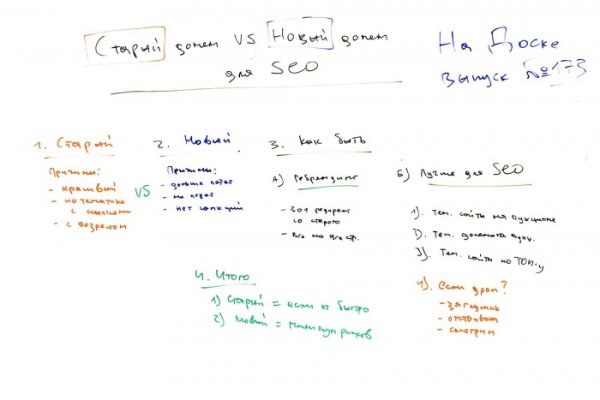 Старый домен VS Новый домен
для SEO
На Доске
выпуск №173
1. Старый
Причины:
- красивый
- по тематике
с ссылками
- с возрастом
VS
2. Новый
Причины:
- дольше
- нет санкций
3. Как быть
А) Ребрендинг
- 301 редирект
со старого
- Все на Все стр.
Б) Лучше для SEO
1). Тем. сайты на аукционе
2). Тем. домены
3). Тем. сайты по ТОП-у
4). если дроп?
- заглушка
- отстоять
- смотрим
4. Итого
1) Старый = если ок быстро
2) Новый = минимум рисков